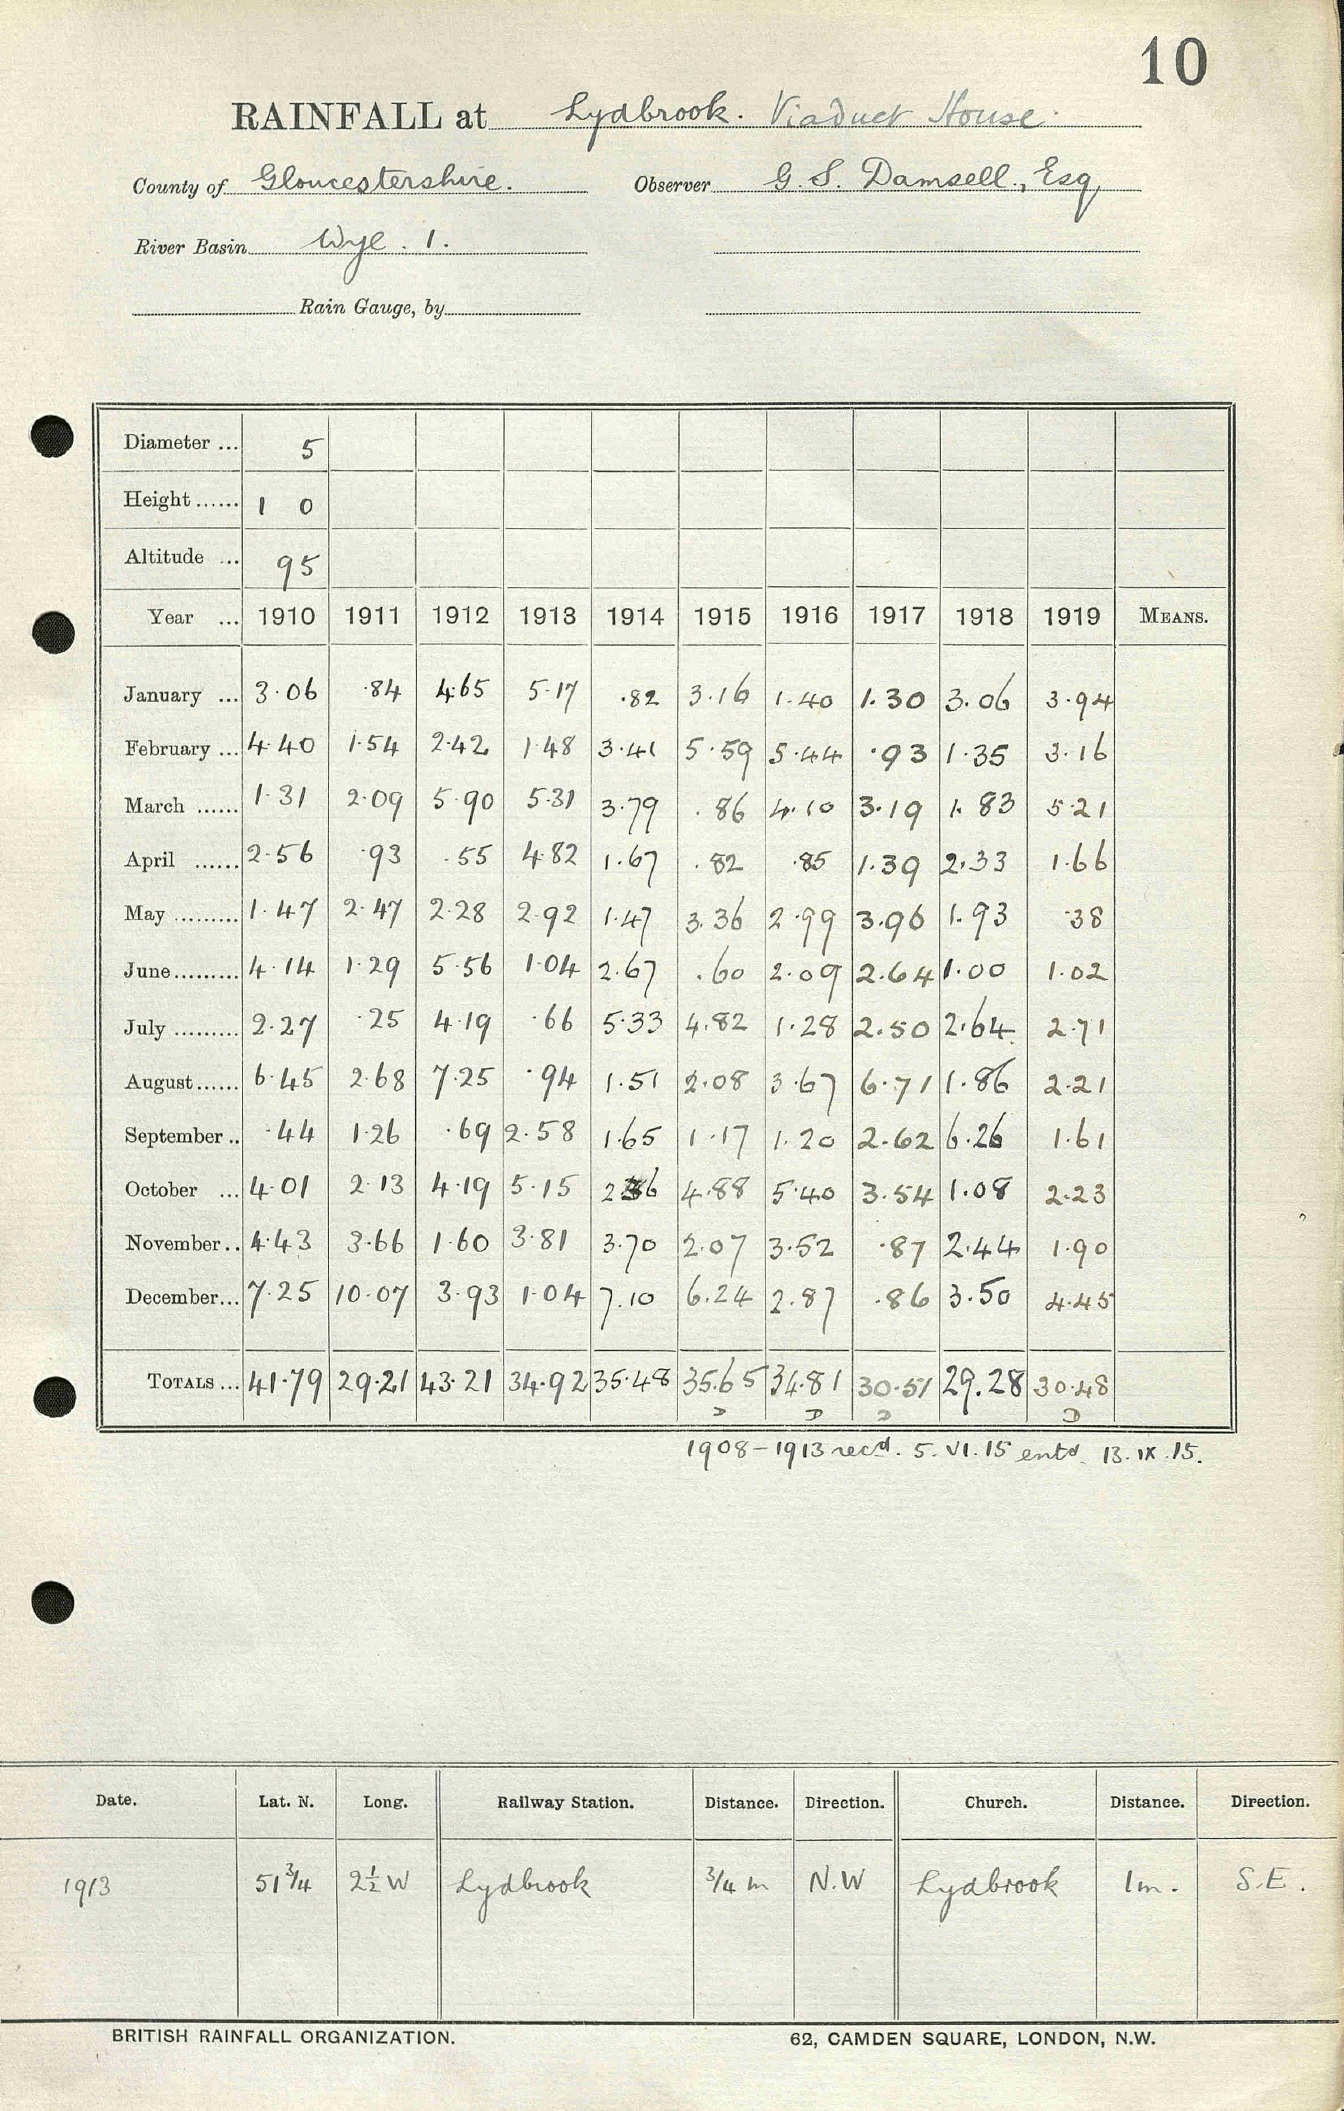 10
RAINFALL at Lydbrook. Viaduct House.
County of Gloucestershire. Observer G. S. Damsell, Esq
River Basin Wye. 1.
Rain Gauge, by
Diameter ... 5
Height ...... 1 0
Altitude ... 95
Year ... 1910 1911 1912 1913 1914 1915 1916 1917 1918 1919 MEANS.
January ... 3.06 .84 4.65 5.17 .82 3.16 1.40 1.30 3.06 3.94
February ... 4.40 1.54 2.42 1.48 3.41 5.59 5.44 .93 1.35 3.16
March ...... 1.31 2.09 5.90 5.31 3.79 .86 4.10 3.19 1.83 5.21
April ...... 2.56 .93 .55 4.82 1.67 .82 .85 1.39 2.33 1.66
May ......... 1.47 2.47 2.28 2.92 1.47 3.36 2.99 3.96 1.93 .38
June......... 4.14 1.29 5.56 1.04 2.67 .60 2.09 2.64 1.00 1.02
July ......... 2.27 .25 4.19 .66 5.33 4.82 1.28 2.50 2.64 2.71
August...... 6.45 2.68 7.25 .94 1.51 2.08 3.67 6.71 1.86 2.21
September .. .44 1.26 .69 2.58 1.65 1.17 1.20 2.62 6.26 1.61
October ... 4.01 2.13 4.19 5.15 2.36 4.88 5.40 3.54 1.08 2.23
November.. 4.43 3.66 1.60 3.81 3.70 2.07 3.52 .87 2.44 1.90
December... 7.25 10.07 3.93 1.04 7.10 6.24 2.87 .86 3.50 4.45
TOTALS ... 41.79 29.21 43.21 34.92 35.48 35.65 34.81 30.51 29.28 30.48
D D D D
1908-1913 recd. 5.VI.15 entd. 13.IX.15.
Date. Lat. N. Long. Railway Station. Distance. Direction. Church. Distance. Direction.
1913 51 3/4 2½ W Lydbrook 3/4 m N.W Lydbrook 1m. S.E.
BRITISH RAINFALL ORGANIZATION. 62, CAMDEN SQUARE, LONDON, N.W.